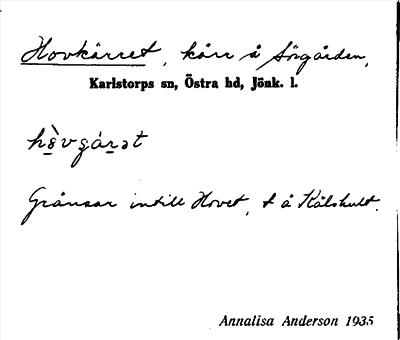 Hovkärret, kärr å Sörgården,
Karlstorps sn, Östra hd, Jönk. l.
Gränsar intill Hovet, t å Kålshult.
Annalisa Anderson 1935